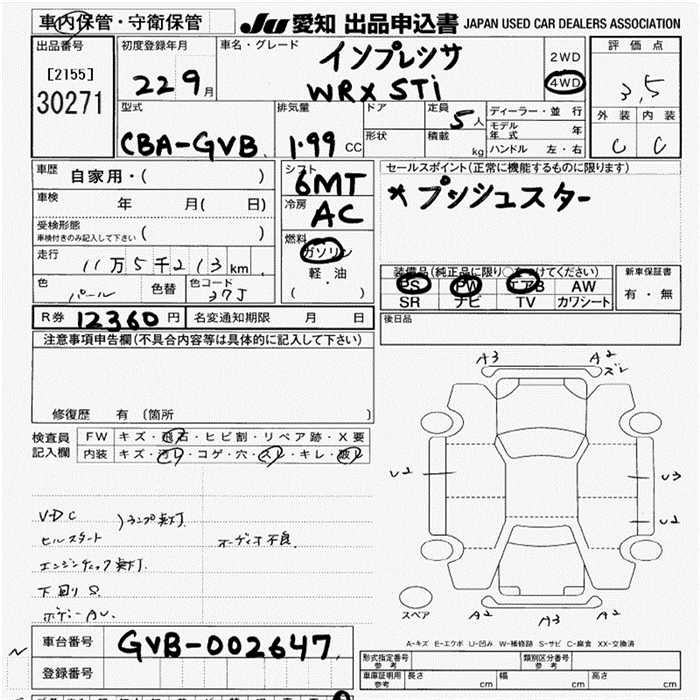 車内保管・守衛保管 JU 愛知 出品申込書 JAPAN USED CAR DEALERS ASSOCIATION
出品番号 初度登録年月 車名・グレード インプレッサ 2WD 評価点
[2155] 22 9月 WRX STi 4WD 3,5
30271 型式 排気量 ドア 定員 5人 ディーラー・並行 外装 内装
CBA-GVB 1.99 CC 形状 積載 kg モデル年式 年 C C
ハンドル 左・右
車歴 自家用・( ) シフト 6MT セールスポイント(正常に機能するものに限ります)
車検 年 月( 日) 冷房 AC * プッシュスター
受検形態
車検付きのみ記入して下さい ( ) 燃料
走行 11万5千213km ガソリン 装備品(純正品に限り○をつけてください) 新車保証書
色 パール 色替 色コード 37J 軽・油 PS PW エアB AW 有・無
( ) SR ナビ TV カワシート
R券 12360円 名変通知期限 月 日 後日品
注意事項申告欄(不具合内容等は具体的に記入して下さい)
修復歴 有 (箇所 )
検査員 FW キズ・飛石・ヒビ割・リペア跡・X要
記入欄 内装 キズ・汚レ・コゲ・穴・スレ・キレ・破レ
VDC )ランプ点灯
ヒルスタート オーディオ不良
エンジンチェック点灯
下回りS
ボデーAU
A3 A2 ズレ
U2 U3
U2
スペア A2 A3 A2
A-キズ E-エクボ U-凹み W-補修跡 S-サビ C-腐食 XX-交換済
車台番号 GVB-002647
登録番号
形式指定番号 参考 類別区分番号 参考
車庫証明用 参考 長さ cm 幅 cm 高さ cm